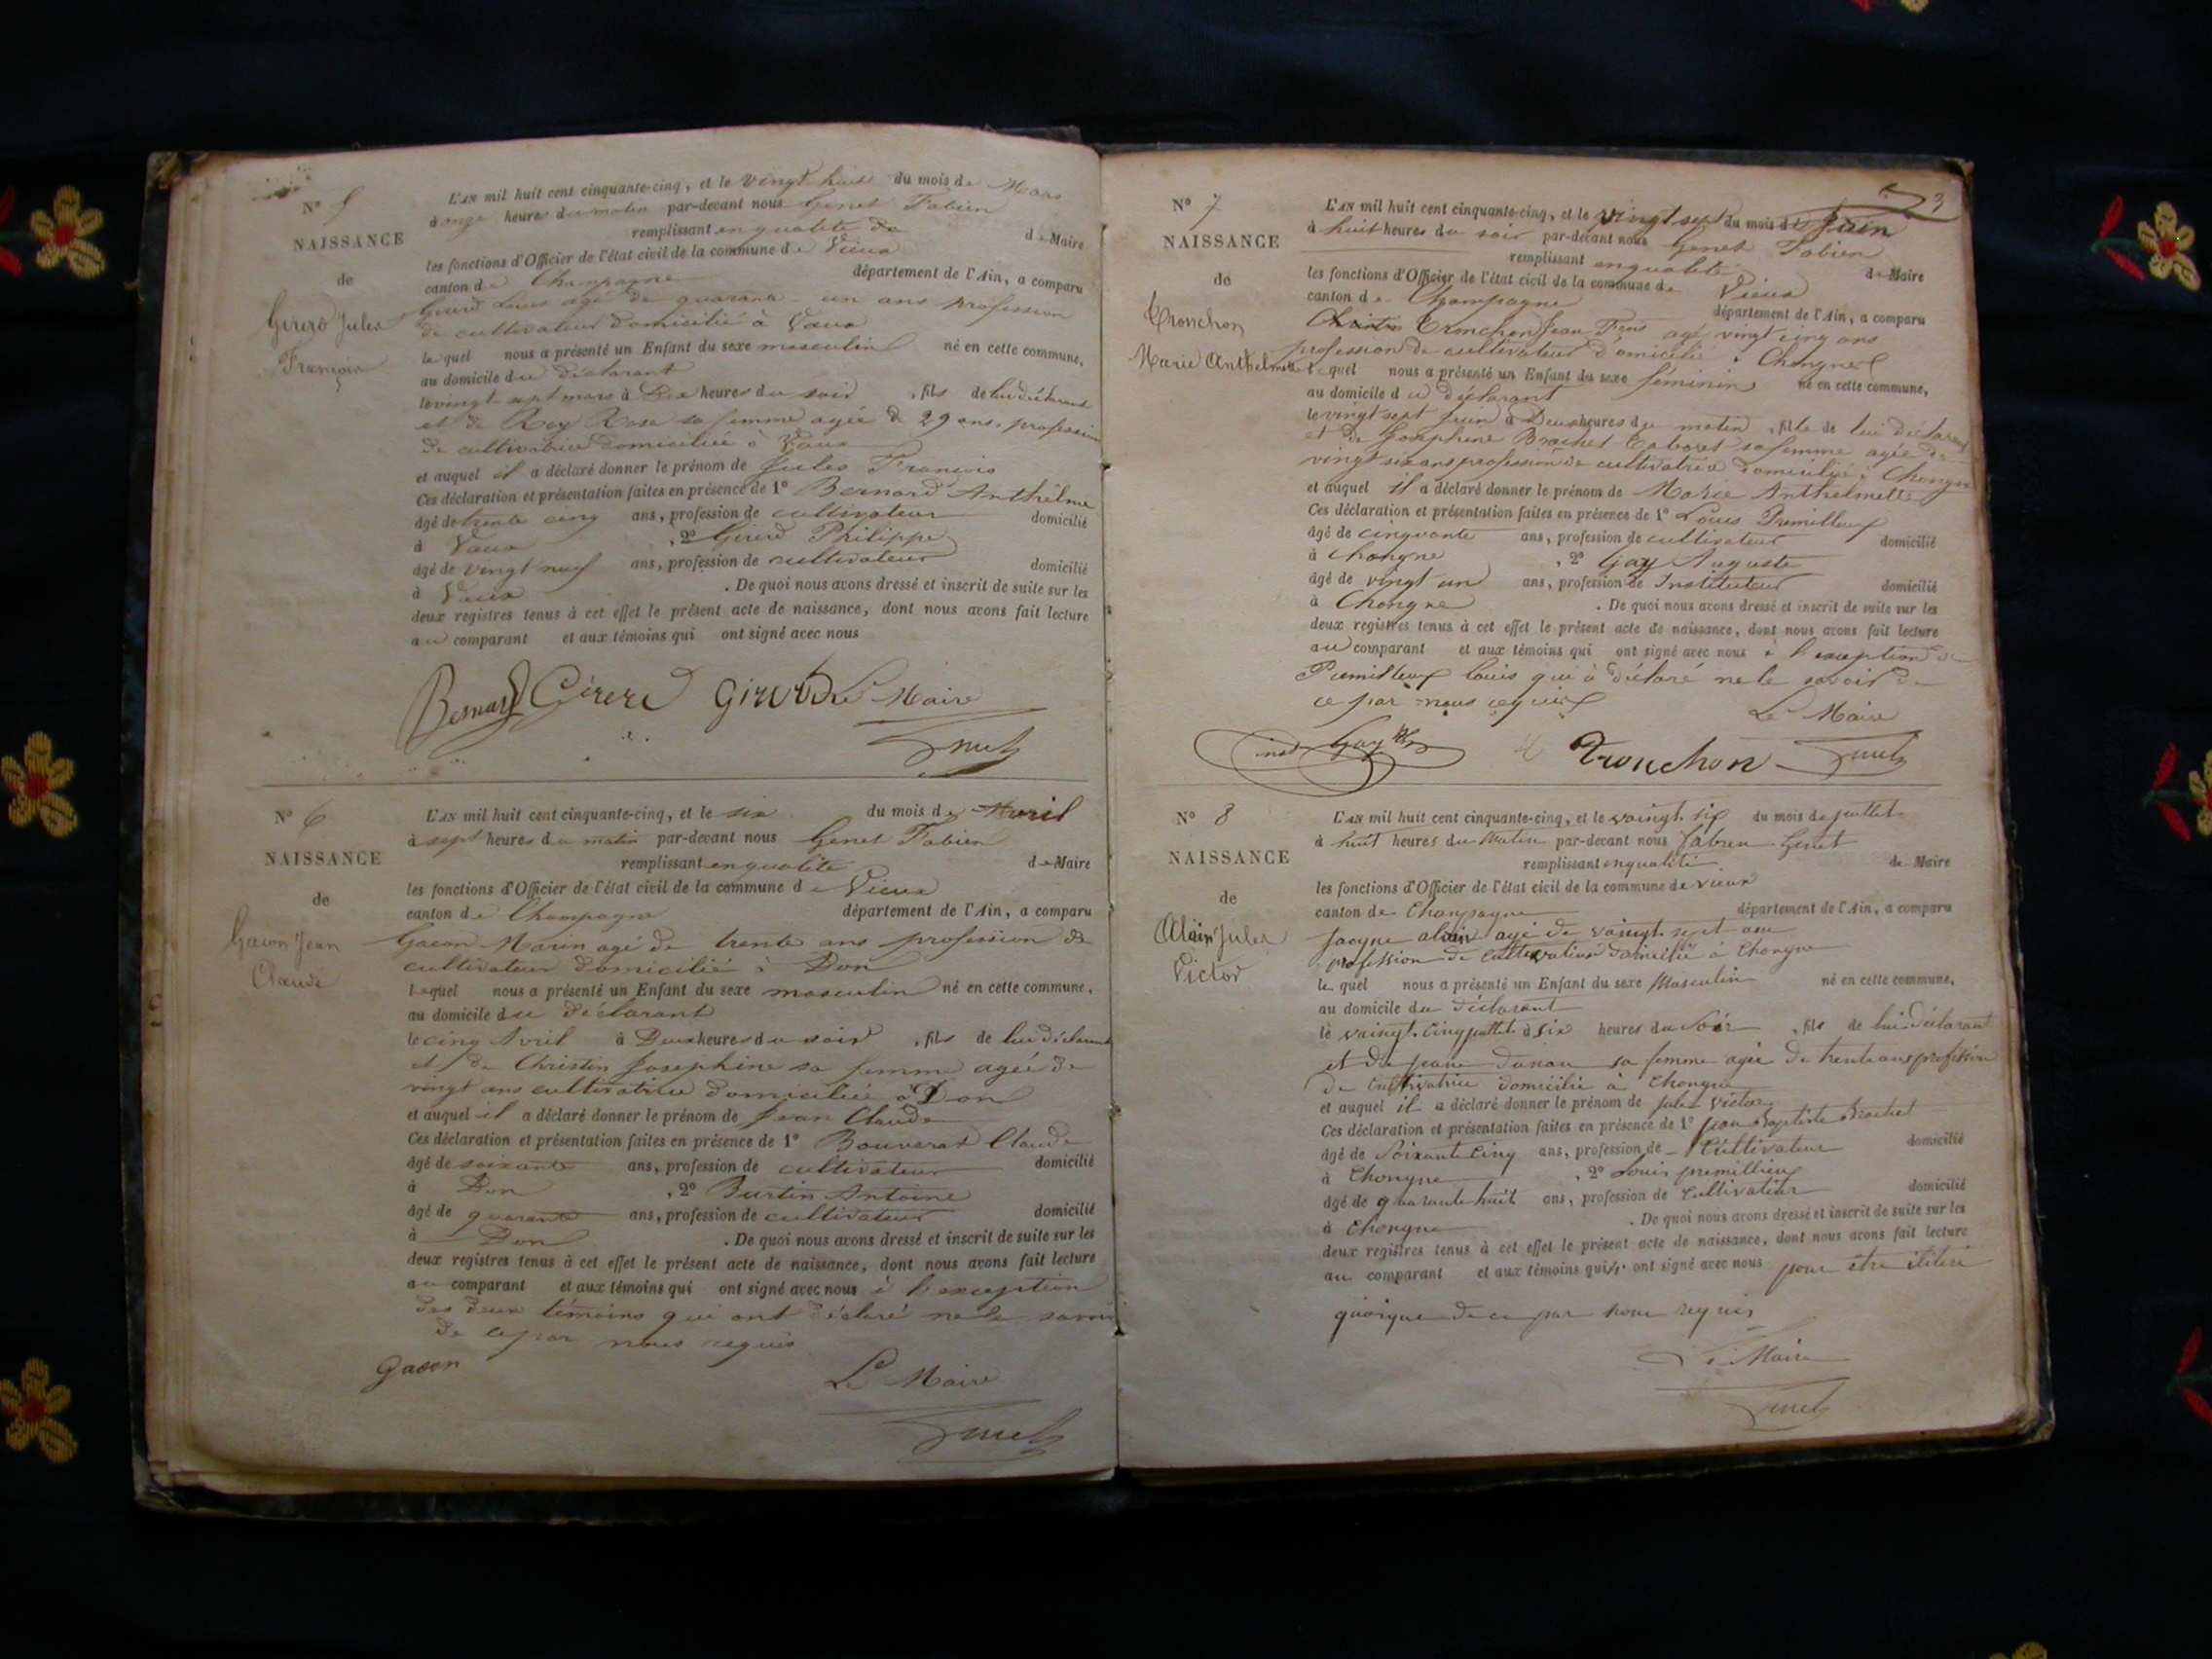 N° 5
NAISSANCE
de
Girerd Jules
François
L'AN mil huit cent cinquante-cinq, et le vingt huit du mois de Mars
à onze heures du matin par-devant nous Genet Fabien
remplissant en qualité de de Maire
les fonctions d'Officier de l'état civil de la commune de Vieux
canton de Champagne département de l'Ain, a comparu
Girerd Louis agé de quarante un ans profession
de cultivateur domicilié à Vaux
lequel nous a présenté un Enfant du sexe masculin né en cette commune,
au domicile du déclarant
le vingt sept mars à Dix heures du soir, fils de lui déclarant
et de Rey Rose sa femme agée de 29 ans, profession
de cultivatrice domiciliée à Vaux
et auquel il a déclaré donner le prénom de Jules François
Ces déclaration et présentation faites en présence de 1° Bernard Anthelme
âgé de trente cinq ans, profession de cultivateur domicilié
à Vaux, 2° Girerd Philippe
âgé de vingt neuf ans, profession de cultivateur domicilié
à Vaux. De quoi nous avons dressé et inscrit de suite sur les
deux registres tenus à cet effet le présent acte de naissance, dont nous avons fait lecture
au comparant et aux témoins qui ont signé avec nous
Bernard Girerd Girerd Le Maire
Genet
N° 6
NAISSANCE
de
Gacon Jean
Claude
L'AN mil huit cent cinquante-cinq, et le six du mois de Avril
à sept heures du matin par-devant nous Genet Fabien
remplissant en qualité de Maire
les fonctions d'Officier de l'état civil de la commune de Vieux
canton de Champagne département de l'Ain, a comparu
Gacon Marin agé de trente ans profession de
cultivateur domicilié à Don
lequel nous a présenté un Enfant du sexe masculin né en cette commune,
au domicile du déclarant
le cinq Avril à Deux heures du soir, fils de lui déclarant
et de Christin Josephine sa femme agée de
vingt ans cultivatrice domiciliée à Don
et auquel il a déclaré donner le prénom de Jean Claude
Ces déclaration et présentation faites en présence de 1° Bouverat Claude
âgé de soixante ans, profession de cultivateur domicilié
à Don, 2° Burtin Antoine
âgé de quarante ans, profession de cultivateur domicilié
à Don. De quoi nous avons dressé et inscrit de suite sur les
deux registres tenus à cet effet le présent acte de naissance, dont nous avons fait lecture
au comparant et aux témoins qui ont signé avec nous à l'exception
des deux témoins qui ont déclaré ne le savoir
de ce par nous requis
Gacon
Le Maire
Genet
3
N° 7
NAISSANCE
de
Tronchon
Marie Anthelmette
L'AN mil huit cent cinquante-cinq, et le vingt sept du mois de Juin
à huit heures du soir par-devant nous Genet Fabien
remplissant en qualité de Maire
les fonctions d'Officier de l'état civil de la commune de Vieux
canton de Champagne département de l'Ain, a comparu
Tronchon Jean agé vingt cinq ans
profession de cultivateur domicilié à Chongne
lequel nous a présenté un Enfant du sexe féminin né en cette commune,
au domicile du déclarant
le vingt sept Juin à Deux heures du matin, fille de lui déclarant
et de Josephine Brachet sa femme agée de
vingt six ans profession de cultivatrice domiciliée à Chongne
et auquel il a déclaré donner le prénom de Marie Anthelmette
Ces déclaration et présentation faites en présence de 1° Louis Premillieux
âgé de cinquante ans, profession de cultivateur domicilié
à Chongne, 2° Gay Auguste
âgé de vingt un ans, profession de Instituteur domicilié
à Chongne. De quoi nous avons dressé et inscrit de suite sur les
deux registres tenus à cet effet le présent acte de naissance, dont nous avons fait lecture
au comparant et aux témoins qui ont signé avec nous à l'exception de
Premillieux Louis qui à déclaré ne le savoir de
ce par nous requis
Le Maire
Gay Tronchon Genet
N° 8
NAISSANCE
de
Alain Jules
Victor
L'AN mil huit cent cinquante-cinq, et le vaingt. six du mois de juillet
à huit heures du Matin par-devant nous Fabien Genet
remplissant en qualité de Maire
les fonctions d'Officier de l'état civil de la commune de Vieux
canton de Champagne département de l'Ain, a comparu
alain agé de vaingt. sept ans
profession de Cultivateur domicilié à Chongne
le quel nous a présenté un Enfant du sexe Masculin né en cette commune,
au domicile du déclarant
le vaingt. cinq juillet à six heures du Soir, fils de lui déclarant
et de sa femme agée de trente ans profession
de Cultivatrice domicilié à Chongne
et auquel il a déclaré donner le prénom de jules Victor
Ces déclaration et présentation faites en présence de 1° jean Baptiste Brachet
âgé de Soixante Cinq ans, profession de Cultivateur domicilié
à Chongne, 2° Louis premillieux
âgé de quarante huit ans, profession de Cultivateur domicilié
à Chongne. De quoi nous avons dressé et inscrit de suite sur les
deux registres tenus à cet effet le présent acte de naissance, dont nous avons fait lecture
au comparant et aux témoins qui ont signé avec nous pour être
quoique de ce par nous requis
Le Maire
Genet